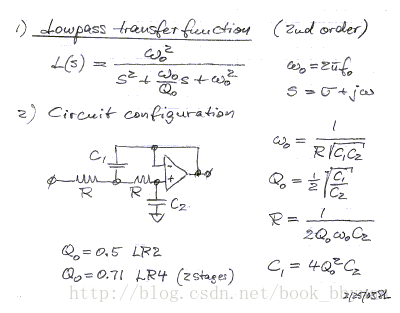 1) Lowpass transfer function (2nd order)
L(s) = ω₀² / (s² + (ω₀/Q₀)s + ω₀²)
ω₀ = 2πf₀
s = σ + jω
2) Circuit configuration
C₁
R R
-
+
C₂
ω₀ = 1 / (R√(C₁C₂))
Q₀ = 1/2 √(C₁/C₂)
R = 1 / (2Q₀ω₀C₂)
C₁ = 4Q₀²C₂
Q₀ = 0.5 LR2
Q₀ = 0.71 LR4 (2 stages)
http://blog.csdn.net/book_bb